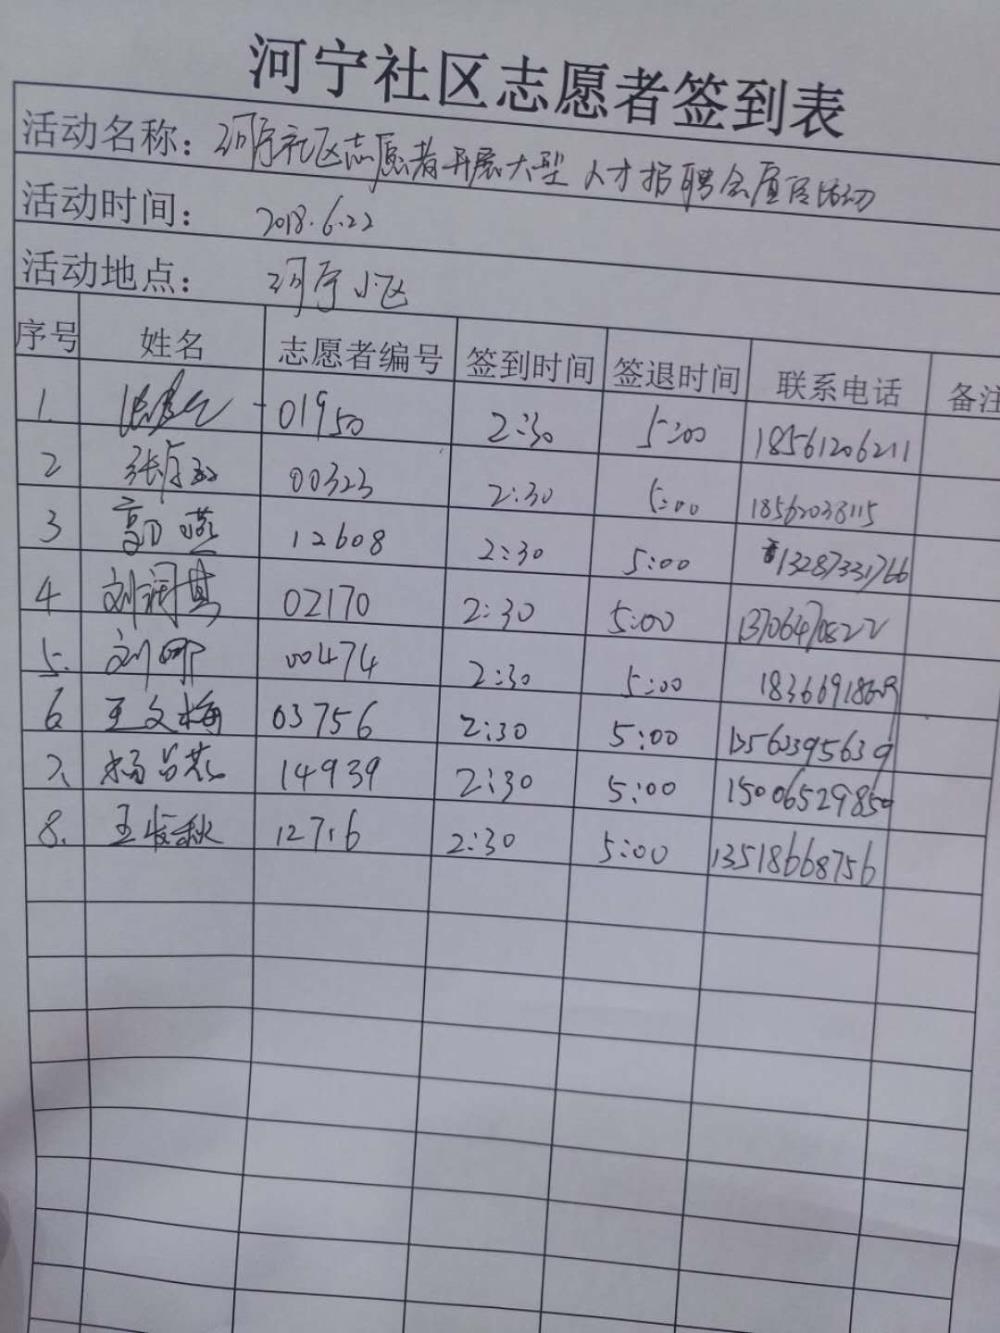 河宁社区志愿者签到表
活动名称：河宁社区志愿者开展大型人才招聘会宣传活动
活动时间：2018.6.22
活动地点：河宁小区
序号 姓名 志愿者编号 签到时间 签退时间 联系电话 备注
1. 01950 2:30 5:00 18561206211
2 00323 2:30 5:00 18562038115
3 郭燕 12608 2:30 5:00 13287331766
4 刘润其 02170 2:30 5:00 13706470822
5. 刘娜 00474 2:30 5:00
6 王文梅 03756 2:30 5:00 13562395639
7、 杨昌燕 14939 2:30 5:00 15006529850
8. 王俊秋 12716 2:30 5:00 13518668756